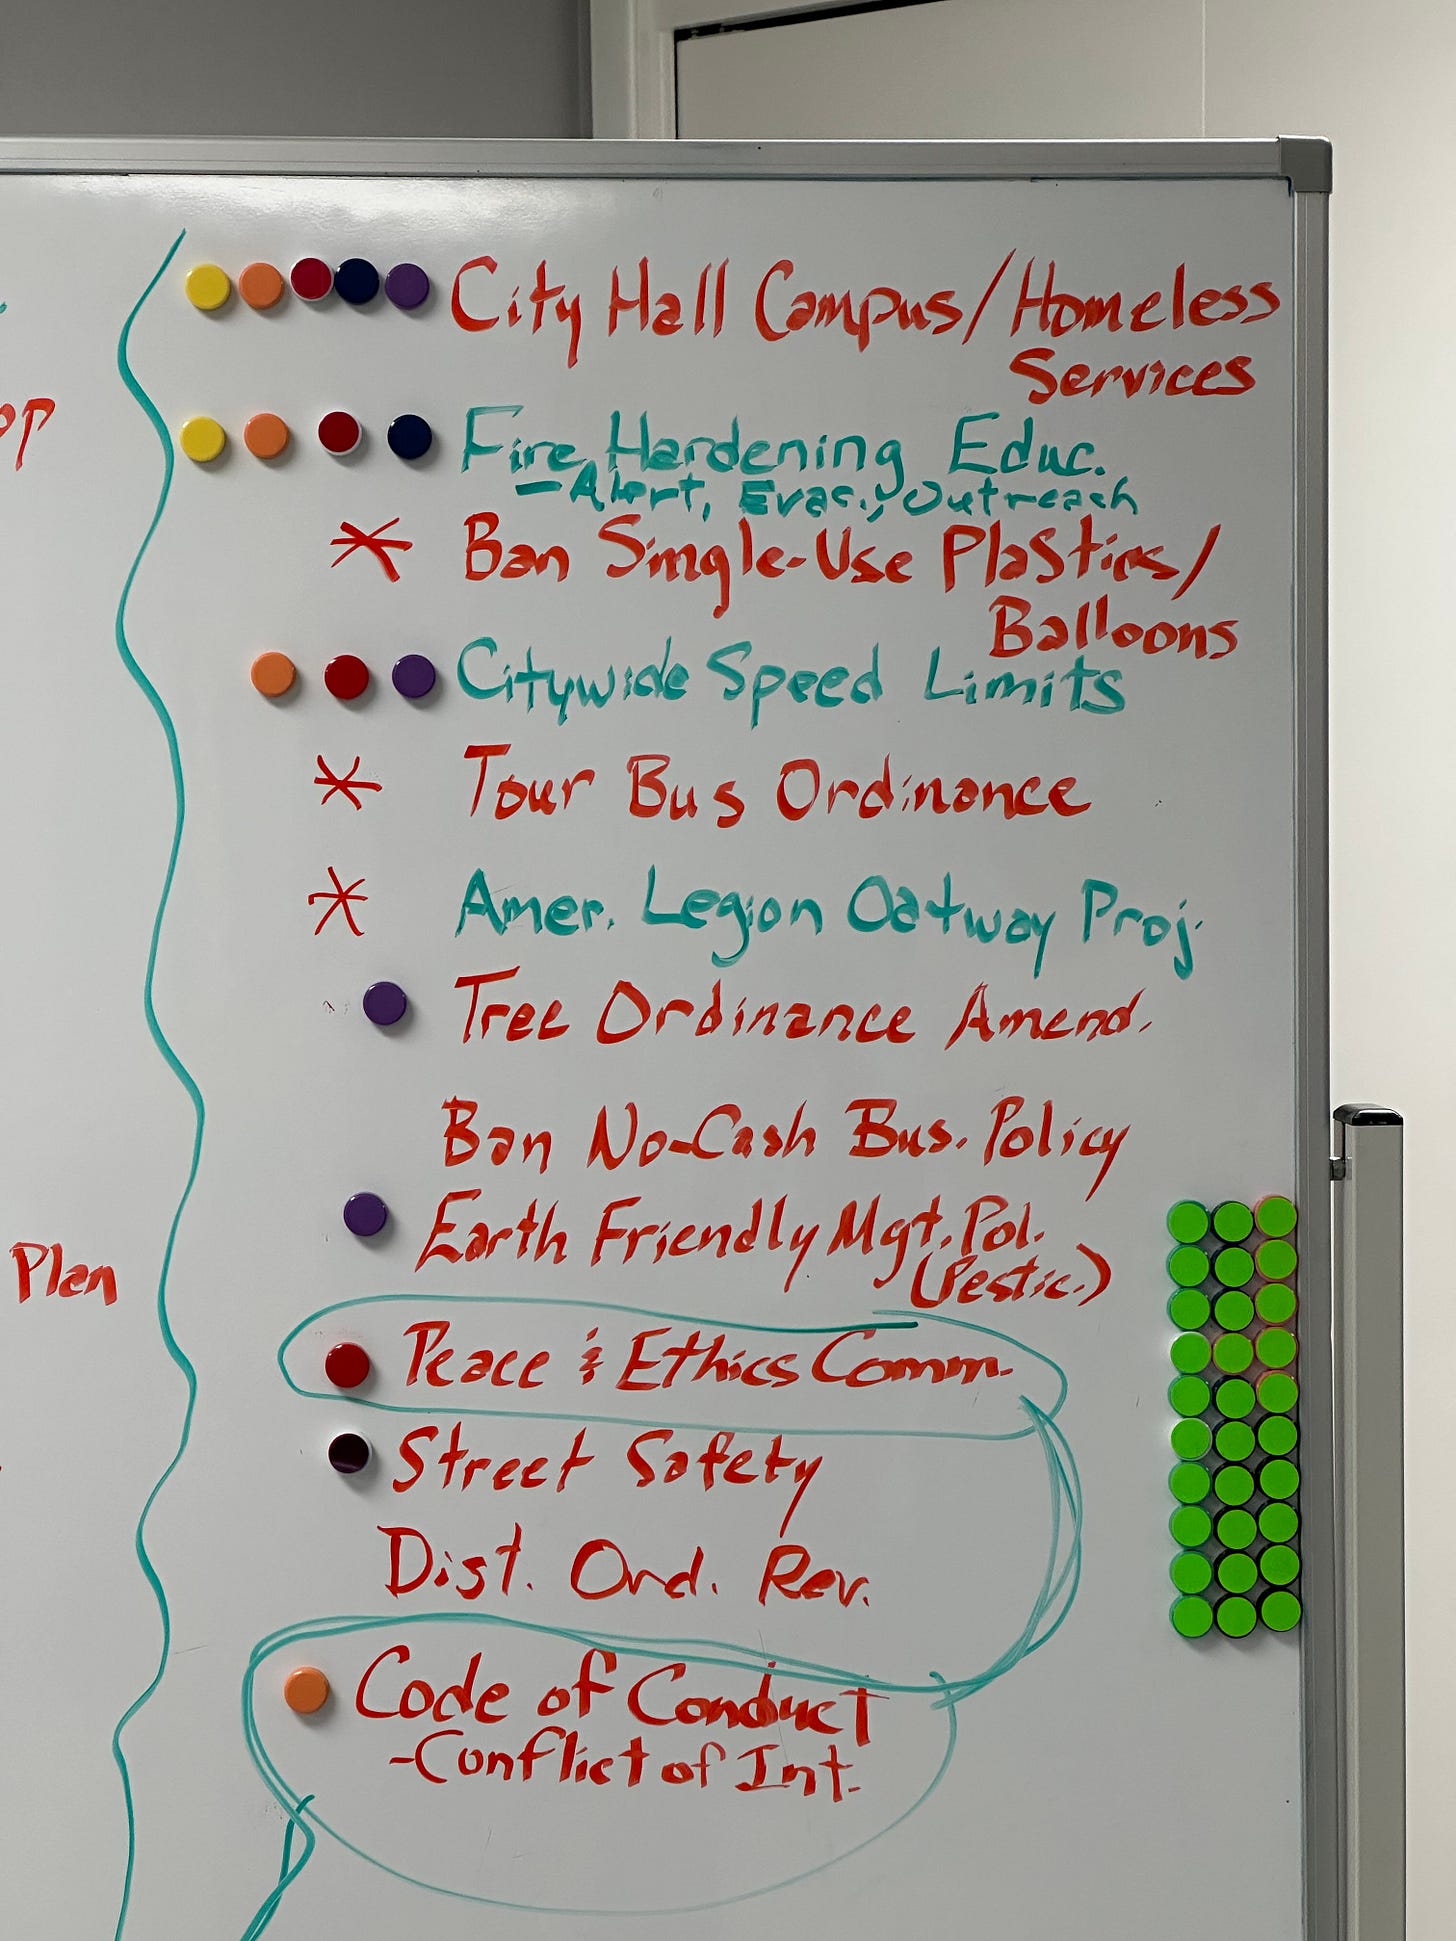 op
Plan
City Hall Campus/Homeless
Services
Fire Hardening Educ.
- Alert, Evac., Outreach
* Ban Single-Use Plastics/
Balloons
Citywide Speed Limits
* Tour Bus Ordinance
* Amer. Legion Oatway Proj.
Tree Ordinance Amend.
Ban No-Cash Bus. Policy
Earth Friendly Mgt. Pol.
(Pestic.)
Peace & Ethics Comm.
Street Safety
Dist. Ord. Rev.
Code of Conduct
-Conflict of Int.